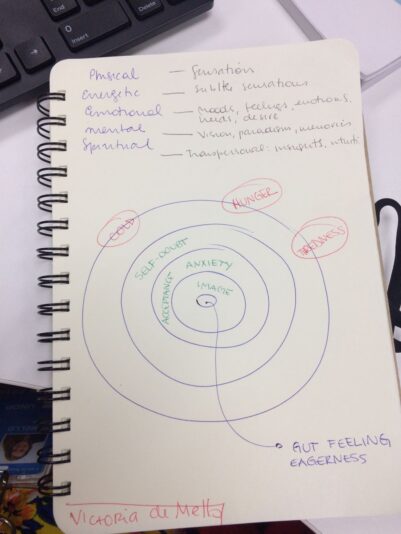 Physical — Sensation
Energetic — Subtle sensations
Emotional — Moods, feelings, emotions,
needs, desire
mental — Vision, paradigm, memories
Spiritual — Transpersonal: insights,
HUNGER
COLD
TIREDNESS
SELF-DOUBT
ANXIETY
ACCEPTANCE
IMAGE
GUT FEELING
EAGERNESS
Victoria de Mello